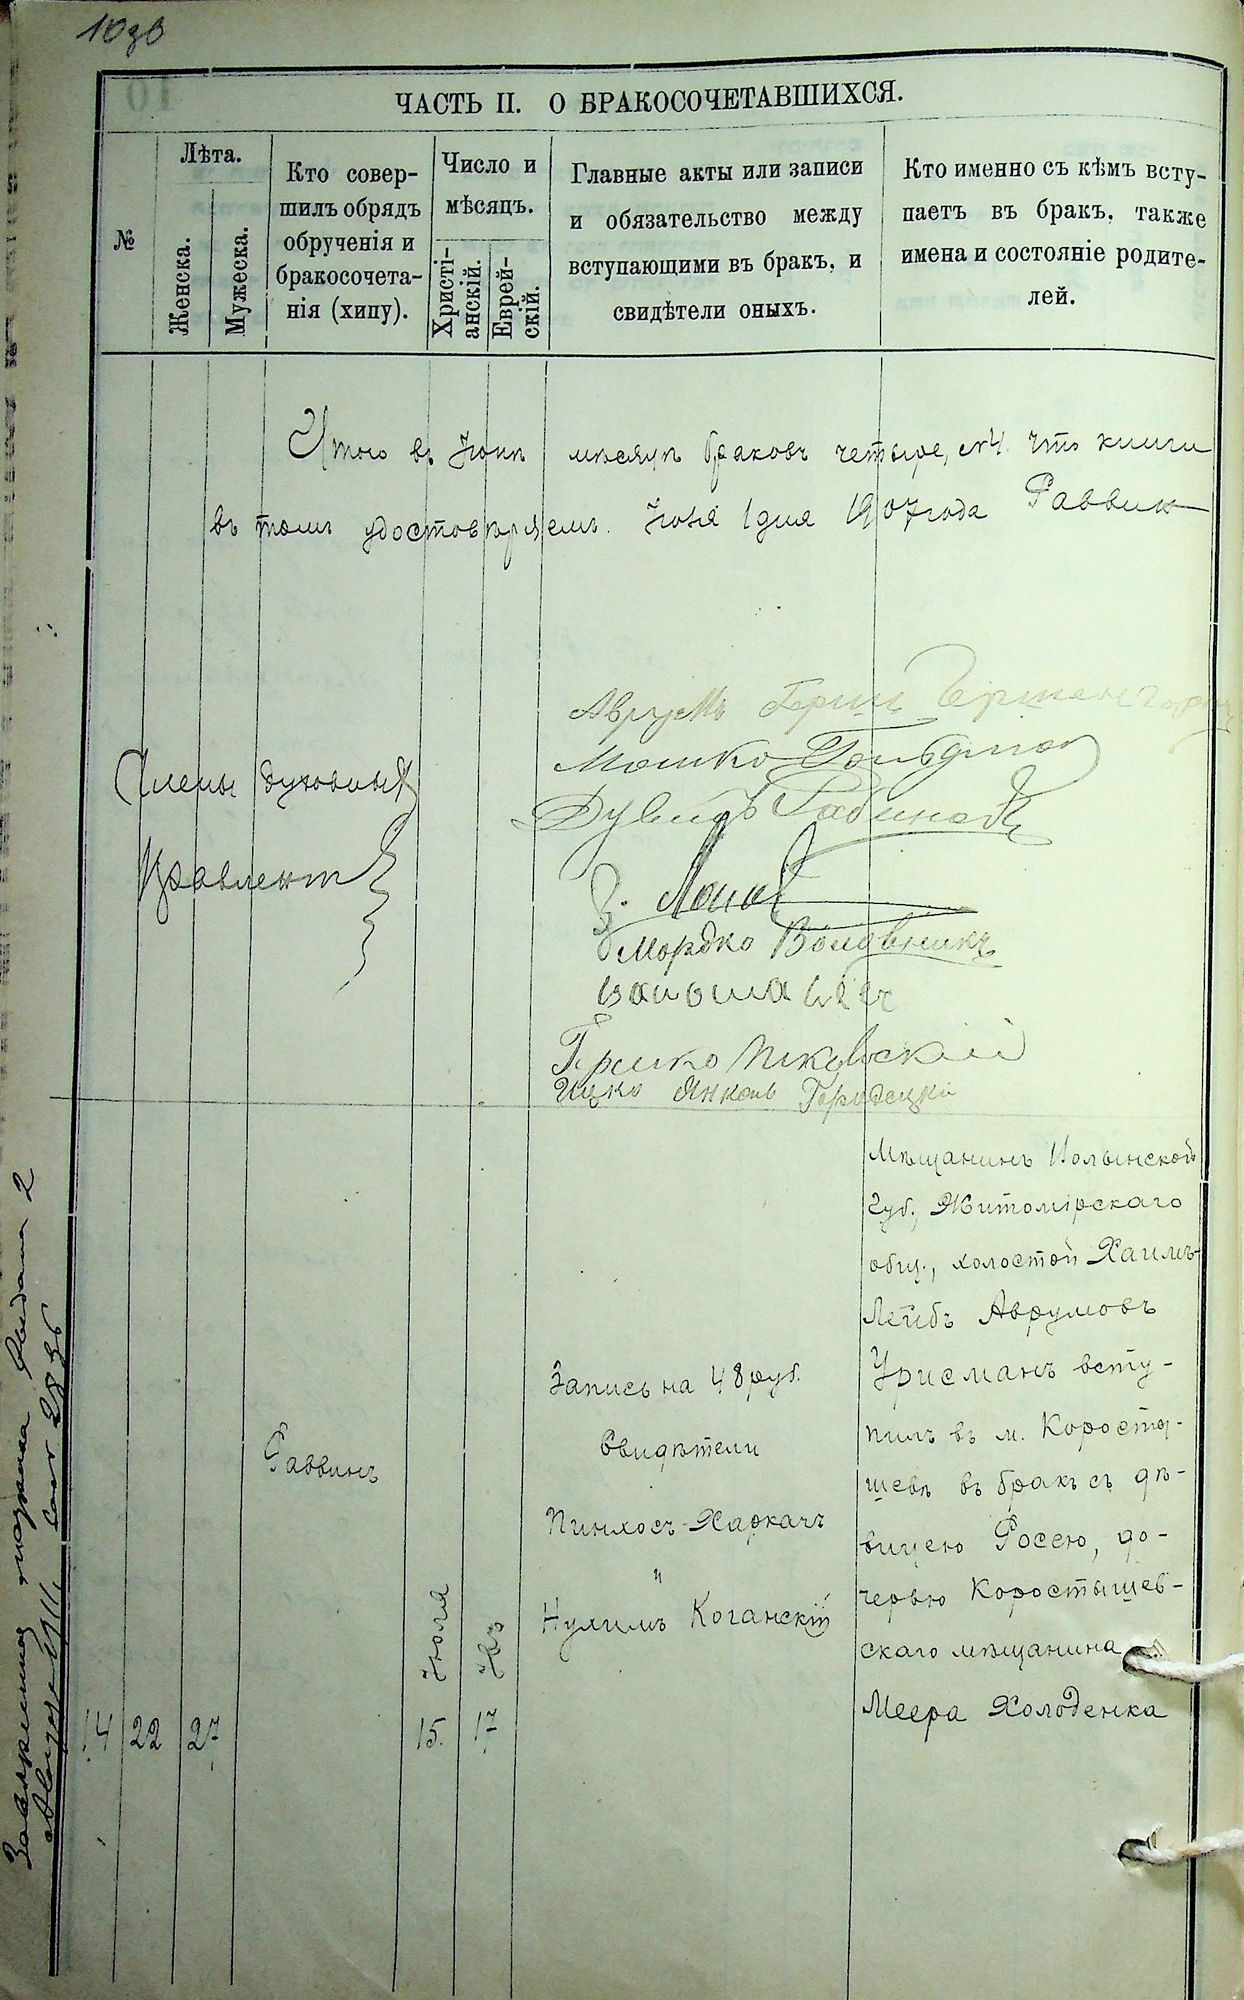 ЧАСТЬ II. О БРАКОСОЧЕТАВШИХСЯ.
№
Лѣта.
Женска.
Мужеска.
Кто совер-
шилъ обрядъ
обрученія и
бракосочета-
нія (хипу).
Число и
мѣсяцъ.
Христі-
анскій.
Еврей-
скій.
Главные акты или записи
и обязательство между
вступающими въ бракъ, и
свидѣтели оныхъ.
Кто именно съ кѣмъ всту-
паетъ въ бракъ, также
имена и состояніе родите-
лей.
Итого въ Іюнѣ мѣсяцѣ браковъ четыре, №4. что книги
въ томъ удостовѣряемъ. 1 дня 1907 года Раввин
Члены духовныя
Правленія
Аврумъ Герш
Мошко Гольдман
Дувидъ Рабинович
Мордко
Гершко
Ицко Янкель Городецкій
14
22
27
Раввинъ
15. Іюля
17
Запись на 48 руб.
Свидѣтели
Пинхосъ Харкачъ
и
Нухимъ Коганскій
Мѣщанинъ Волынской
Губ., Житомірскаго
общ., холостой Хаимъ-
Лейбъ Аврумовъ
Урисманъ всту-
пилъ въ м. Коросты-
шевѣ въ бракъ съ дѣ-
вицею Росею, до-
черью Коростышев-
скаго мѣщанина
Меера Холоденка